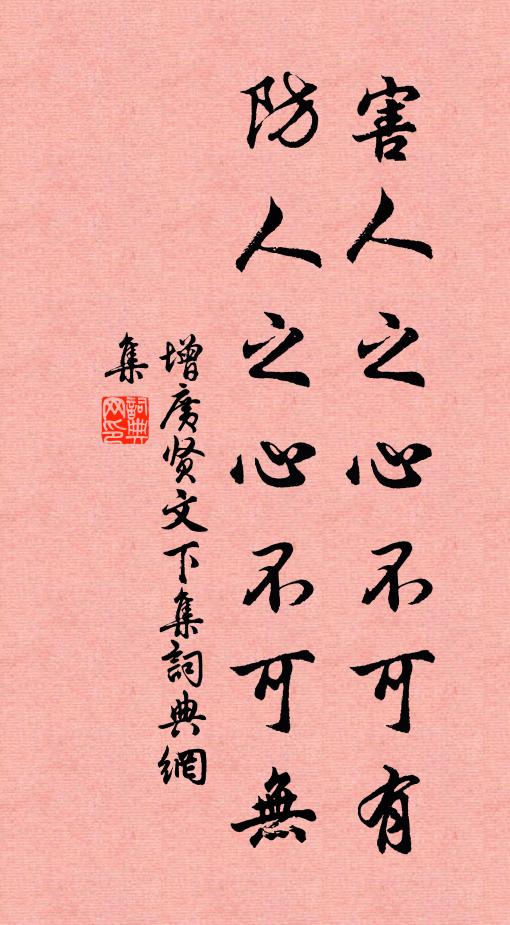 害人之心不可有
防人之心不可無
增廣贤文下集詞典網
集
詞典
网印